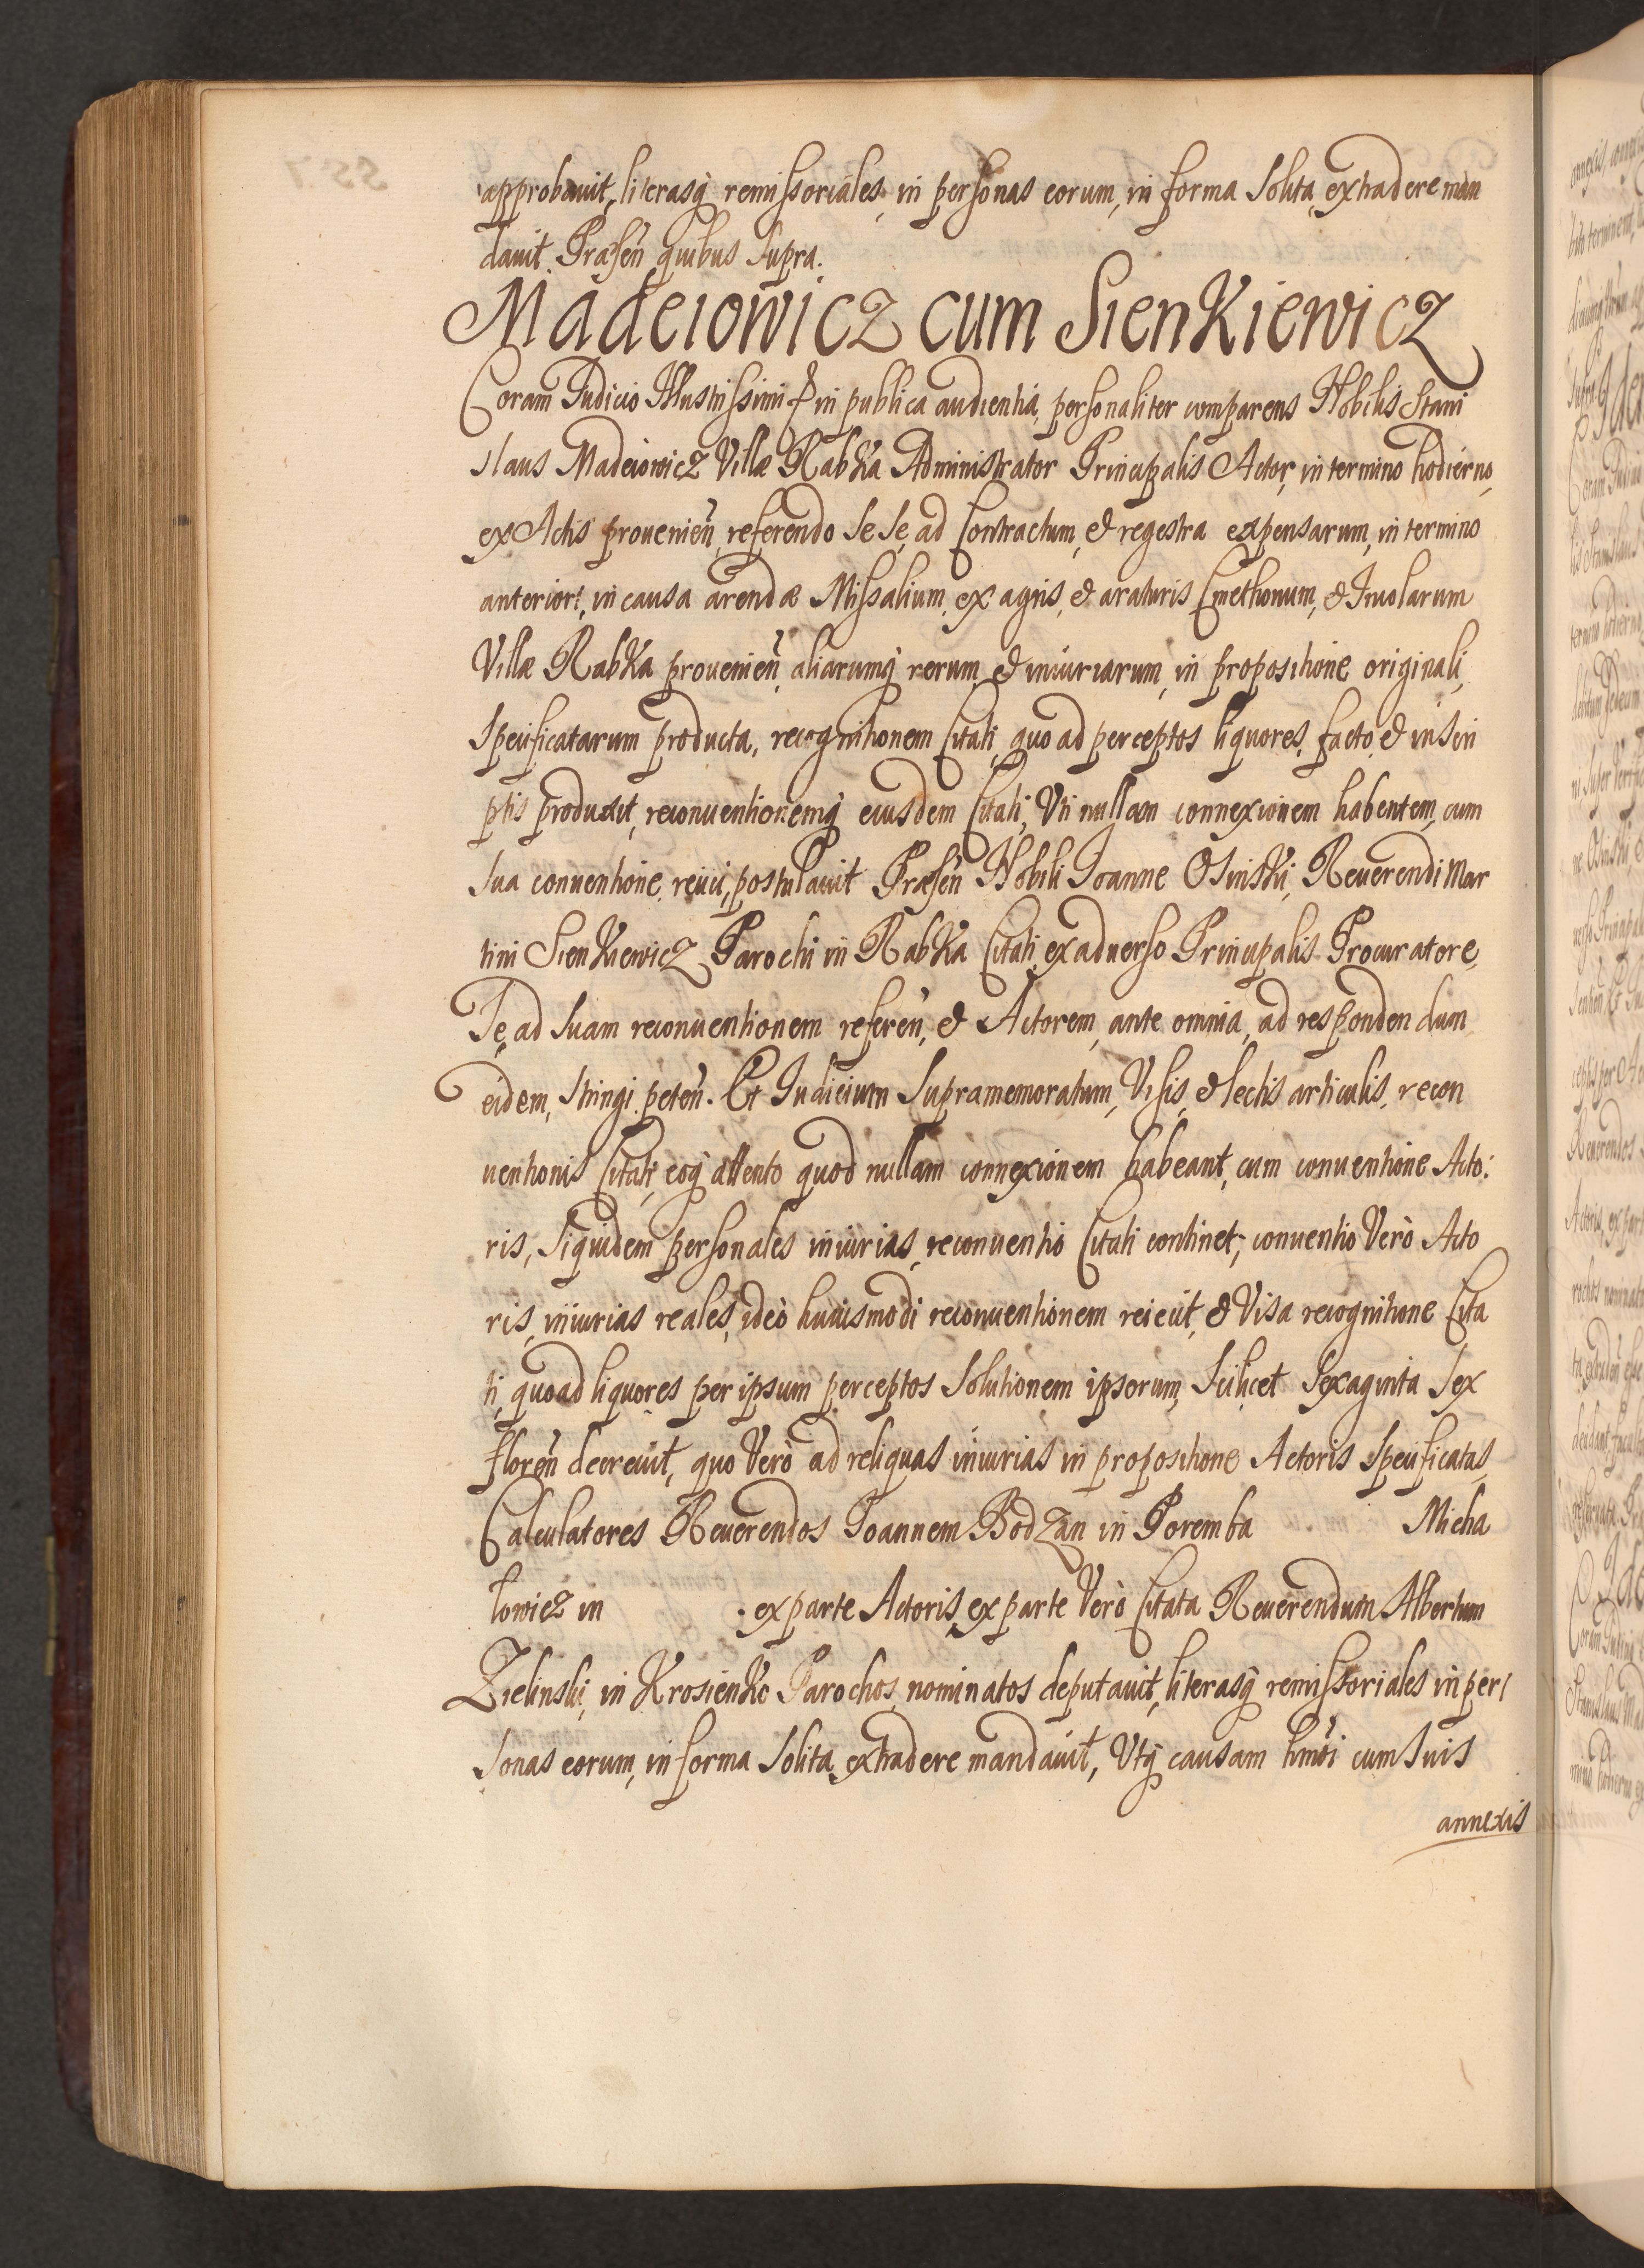 approbavit, literasq̀ remissoriales, in personas eorum, in forma solita, extradere man
davit. Præsen̄ quibus supra.
Madeiowicz cum Sienkiewicz
Coram Iudicio Illustrissimi & in publica audientia, personaliter comparens Nobilis Stani
slaus Madeiowicz Villæ Rabka Administrator Principalis Actor, in termino hodierno,
ex Actis provenien̄, referendo se se, ad Contractum, & regestra expensarum, in termino
anteriori, in causa arendæ Missalium, ex agris, & araturis Cmethonum, & Incolarum
Villæ Rabka provenien̄, aliarumq̀ rerum, & iniuriarum, in propositione originali,
specificatarum producta, recognitionem Citati, quo ad perceptos liquores, facto, & in scri
ptis produxit, reconventionemq̀ eiusdem Citati, Vti nullam connexionem habentem, cum
sua conventione, reiici, postulavit Præsen̄ Nobili Ioanne Osinski, Reverendi Mar
tini Sienkiewicz Parochi in Rabka Citati ex adverso Principalis Procuratore,
Se, ad suam reconventionem referen̄, & Actorem, ante omnia, ad respondendum
eidem, stringi peten̄. Et Iudicium supramemoratum, Visis, & lectis articulis, recon
ventionis Citati, eoq̀ attento quod nullam connexionem habeant, cum conventione Acto:
ris, siquidem personales iniurias, reconventio Citati continet; conventio Verò Acto
ris, iniurias reales, ideò huiusmodi reconventionem reiecit, & Visa recognitione Cita
ti, quoad liquores per ipsum perceptos solutionem ipsorum, scilicet sexaginta sex
floren̄ decrevit, quo Verò ad reliquas iniurias in propositione Actoris specificatas,
Calculatores Reverendos Ioannem Bodzan in Poremba Micha
lowicz in . ex parte Actoris, ex parte Verò Citata Reverendum Albertum
Zielinski, in Krosienko Parochos, nominatos deputavit, literasq̀ remissoriales in per
sonas eorum, in forma solita, extradere mandavit, Vtq̀ causam hmōi cum suis
annexis